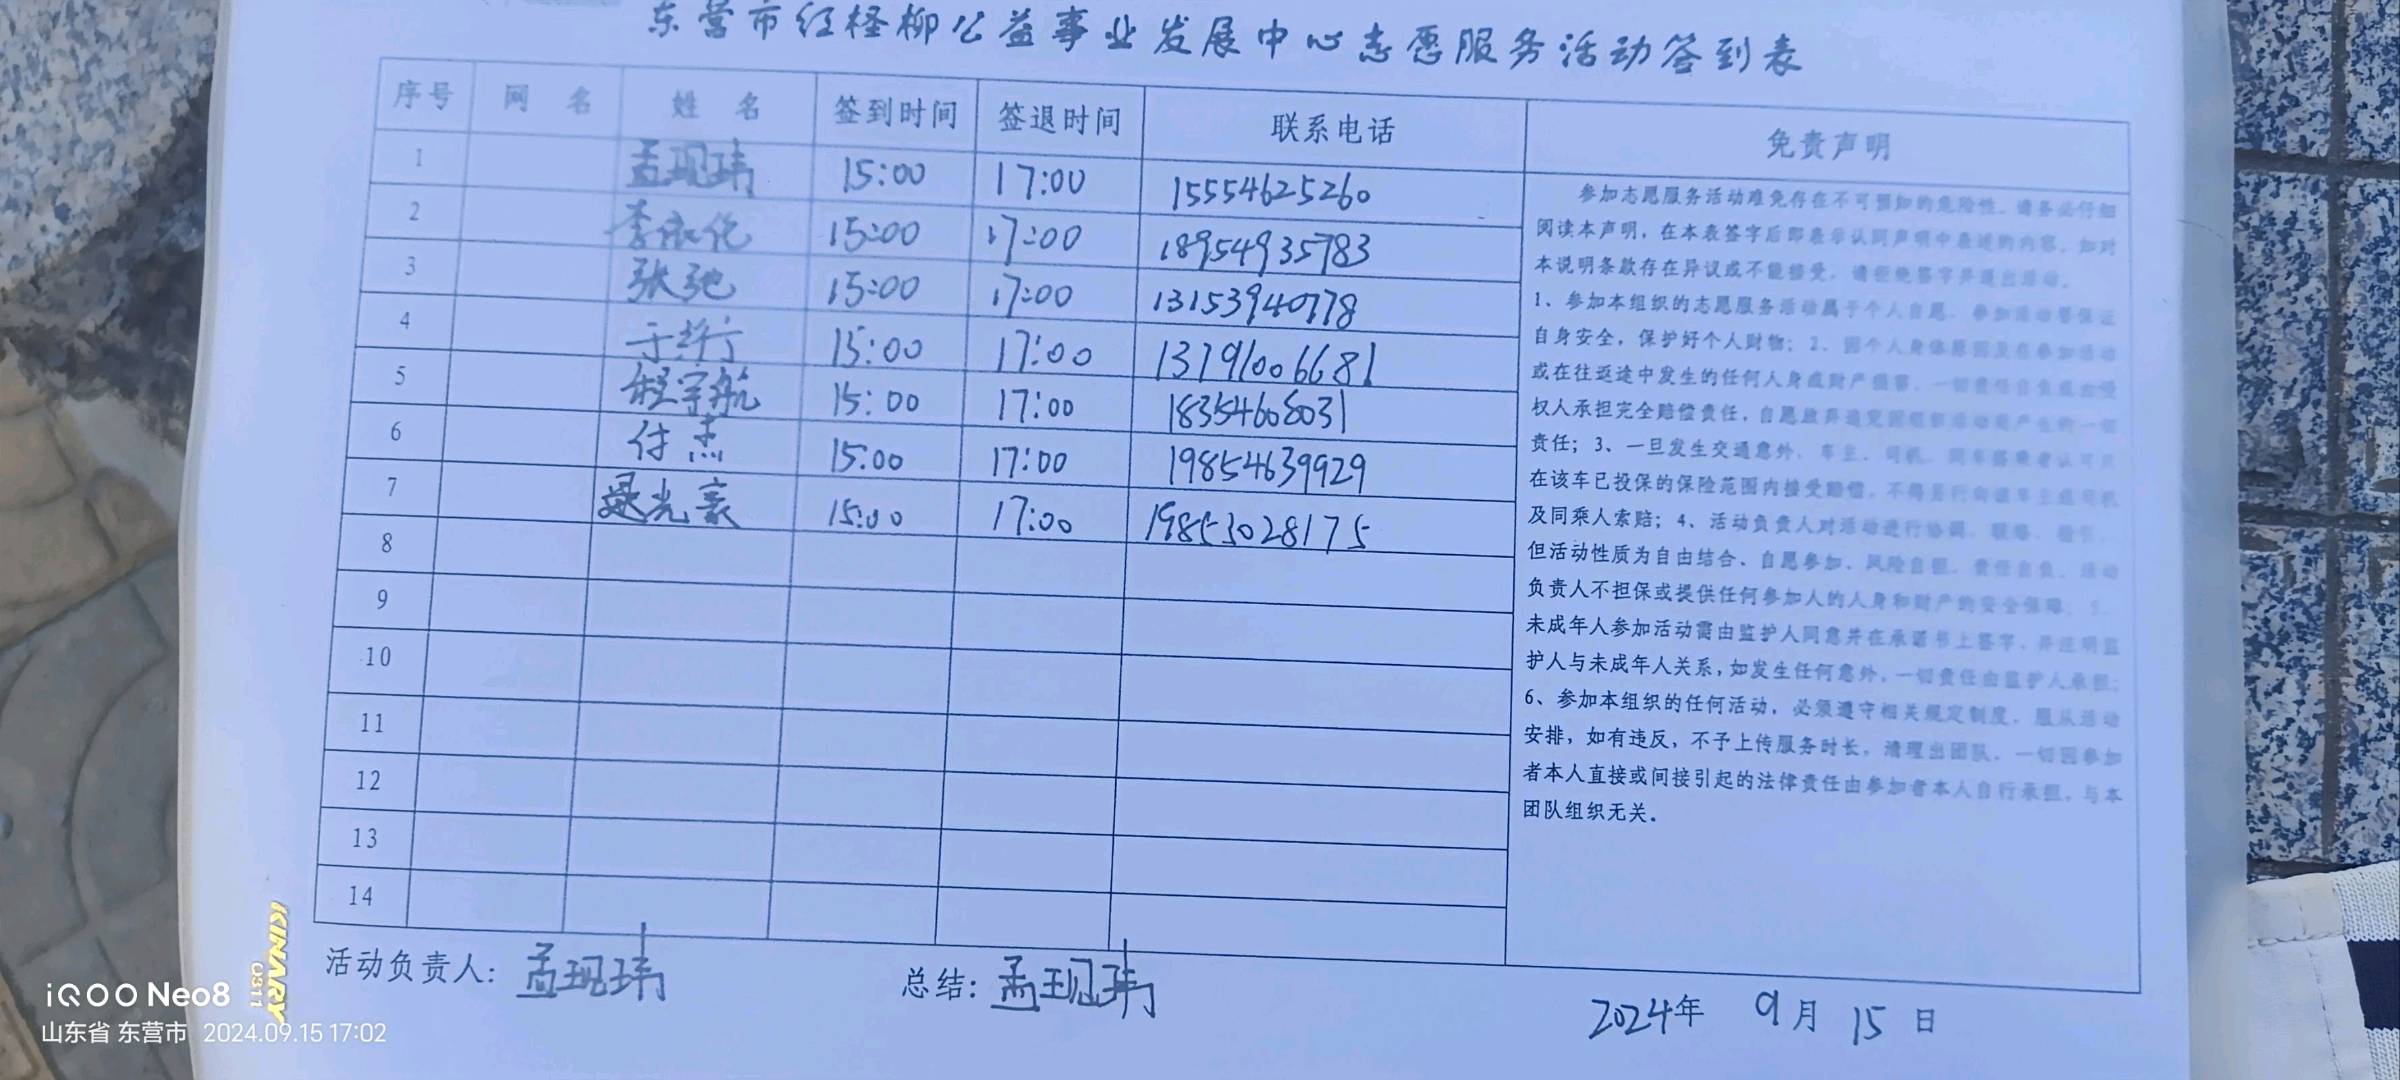 东营市红柽柳公益事业发展中心志愿服务活动签到表
序号 网 名 姓 名 签到时间 签退时间 联系电话 免责声明
1 孟现玮 15:00 17:00 15554625260
2 李依伦 15:00 17:00 18954935783
3 张弛 15:00 17:00 13153940778
4 15:00 17:00 13791006681
5 程宇航 15:00 17:00 18354608031
6 付杰 15:00 17:00 19854639929
7 光豪 15:00 17:00 19853028175
8
9
10
11
12
13
14
参加志愿服务活动难免存在不可预知的危险性，请务必仔细
阅读本声明，在本表签字后即表示认同声明中表述的内容，如对
本说明条款存在异议或不能接受，请拒绝签字并退出活动。
1、参加本组织的志愿服务活动属于个人自愿，参加活动要保证
自身安全，保护好个人财物；2、因个人身体原因及在参加活动
或在往返途中发生的任何人身或财产损害，一切责任自负或由侵
权人承担完全赔偿责任，自愿放弃追究因组织活动而产生的一切
责任；3、一旦发生交通意外，车主、司机、同车搭乘者认可只
在该车已投保的保险范围内接受赔偿，不得另行向该车主或司机
及同乘人索赔；4、活动负责人对活动进行协调、联络、指引，
但活动性质为自由结合、自愿参加、风险自担、责任自负，活动
负责人不担保或提供任何参加人的人身和财产的安全保障；5、
未成年人参加活动需由监护人同意并在承诺书上签字，并注明监
护人与未成年人关系，如发生任何意外，一切责任由监护人承担；
6、参加本组织的任何活动，必须遵守相关规定制度，服从活动
安排，如有违反，不予上传服务时长，清理出团队，一切因参加
者本人直接或间接引起的法律责任由参加者本人自行承担，与本
团队组织无关。
活动负责人：孟现玮 总结：孟现玮 2024年 9月 15日
KINARY
0311
iQOO Neo8
山东省 东营市 2024.09.15 17:02